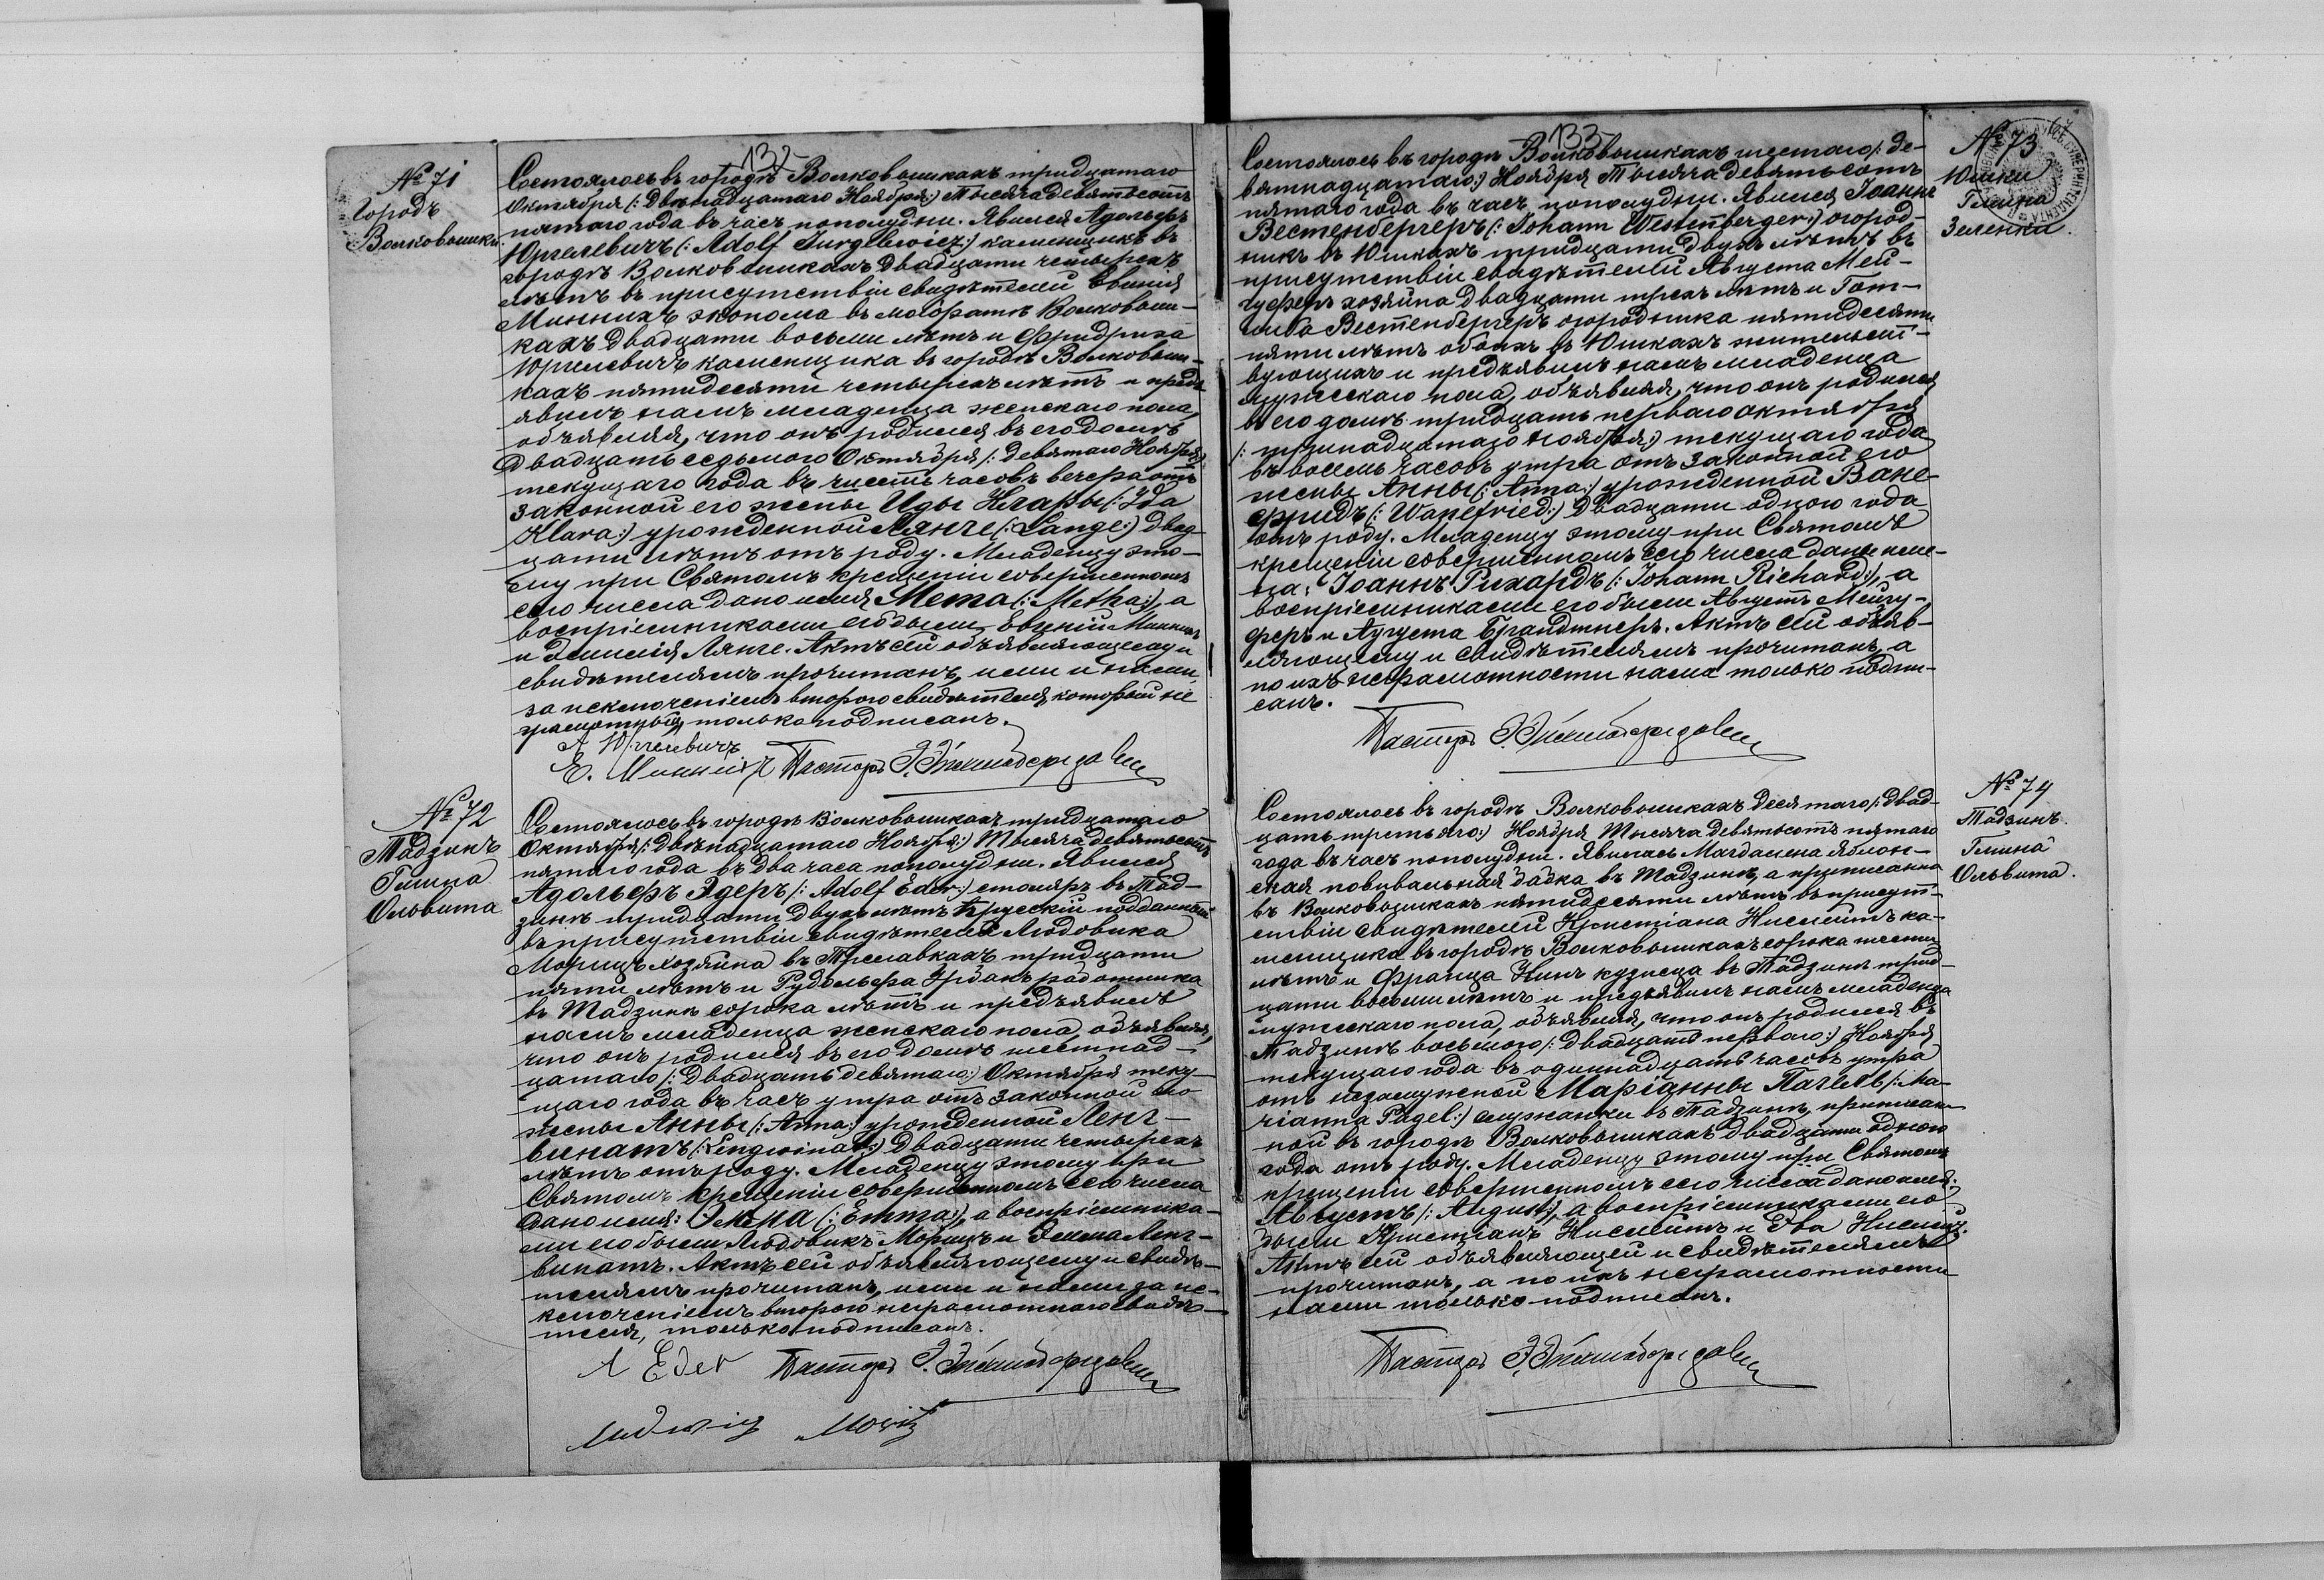 132
№ 71
Городъ
Волковышки.
Состоялось въ городѣ Волковышкахъ тридцатаго
Октября (: двѣнадцатаго Ноября:) Тысяча девятьсотъ
пятаго года въ часъ пополудни. Явился Адольфъ
Юргелевичъ (: Adolf Jurgilewicz:) каменщикъ въ
городѣ Волковышкахъ двадцати четырехъ
лѣтъ въ присутствіи свидѣтелей Евгенія
Миннихъ эконома въ маіоратѣ Волковыш-
кахъ двадцати восьми лѣтъ и Фридриха
Юргелевичъ каменщика въ городѣ Волковыш-
кахъ пятидесяти четырехъ лѣтъ и предъ
явилъ намъ младенца женскаго пола,
объявляя, что онъ родился въ его домѣ
двадцать седьмого Октября (: девятаго Ноября:)
текущаго года въ шесть часовъ вечера отъ
законной его жены Иды Клары (: Ida
Klara:) урожденной Лянге (: Lange:) двад-
цати лѣтъ отъ роду. Младенцу это-
му при Святомъ крещеніи совершенномъ
сего числа дано имя Мета (: Metha:), а
воспріемниками его были Евгеній Миннихъ
и Эмилія Лянге. Актъ сей объявляющему и
свидѣтелямъ прочитанъ, ими и нами,
за исключеніемъ второго свидѣтеля, который не
грамотный, только подписанъ.
А Юргелевичъ
Е. Миннихъ Пасторъ
№ 72
Тадзинъ
Гмина
Ольвита
Состоялось въ городѣ Волковышкахъ тридцатаго
Октября (: двѣнадцатаго Ноября:) Тысяча девятьсотъ
пятаго года въ два часа пополудни. Явился
Адольфъ Эдеръ (: Adolf Eder:) столяръ въ Тад-
зинѣ тридцати двухъ лѣтъ Прусскій подданный
въ присутствіи свидѣтелей Людовика
Морицъ хозяина въ тридцати
пяти лѣтъ и Рудольфа Урбанъ работника
въ Тадзинѣ сорока лѣтъ и предъявилъ
намъ младенца женскаго пола, объявляя,
что онъ родился въ его домѣ шестнад-
цатаго (: двадцать девятаго:) Октября теку-
щаго года въ часъ утра отъ законной его
жены Анны (: Anna:) урожденной Ленг-
винатъ (: Lengwinat:) двадцати четырехъ
лѣтъ отъ роду. Младенцу этому при
Святомъ крещеніи совершенномъ сего числа
дано имя: Эмма (: Emma:), а воспріемника-
ми его были Людовикъ Морицъ и Эмма Ленг-
винатъ. Актъ сей объявляющему и свидѣ-
телямъ прочитанъ, ими и нами за ис-
ключеніемъ второго неграмотнаго свидѣ-
теля, только подписанъ.
A Eder Пасторъ
Ludwig Moritz
133
№ 73
Юшки
Гмина
Зеленки.
Состоялось въ городѣ Волковышкахъ шестаго (: де-
вятнадцатаго:) Ноября Тысяча девятьсотъ
пятаго года въ часъ пополудни. Явился Іоаннъ
Вестенбергеръ (: Johann Westenberger:) огород-
никъ въ Юшкахъ тридцати двухъ лѣтъ въ
присутствіи свидѣтелей Августа Мей-
чуферъ хозяина двадцати трехъ лѣтъ и Гот-
либа Вестенбергеръ огородника пятидесяти
пяти лѣтъ обоихъ въ Юшкахъ жительст-
вующихъ и предъявилъ намъ младенца
мужескаго пола, объявляя, что онъ родился
въ его домѣ тридцать перваго октября
(: тринадцатаго ноября:) текущаго года
въ восемь часовъ утра отъ законной его
жены Анны (: Anna:) урожденной Ване-
фридъ (: Wanefried:) двадцати одного года
отъ роду. Младенцу этому при Святомъ
крещеніи совершенномъ сего числа даны име-
на: Іоаннъ Рихардъ (: Johann Richard:), а
воспріемниками его были Августъ Мейчу-
феръ и Аугуста Брандтнеръ. Актъ сей объяв-
ляющему и свидѣтелямъ прочитанъ, а
по ихъ неграмотности нами только подпи-
санъ.
Пасторъ
№ 74
Тадзинъ
Гмина
Ольвита.
Состоялось въ городѣ Волковышкахъ десятаго (: двад-
цать третьяго:) Ноября Тысяча девятьсотъ пятаго
года въ часъ пополудни. Явилась Магдалена Яблон-
ская повивальная бабка въ Тадзинѣ, а приписанна
въ Волковышкахъ пятидесяти лѣтъ въ присут-
ствіи свидѣтелей Христіана Нислейтъ ка-
менщика въ городѣ Волковышкахъ сорока шести
лѣтъ и Франца Кинъ кузнеца въ Тадзинѣ трид-
цати восьми лѣтъ и предъявилъ намъ младенца
мужескаго пола, объявляя, что онъ родился въ
Тадзинѣ восьмого (: двадцать перваго:) Ноября
текущаго года въ одиннадцать часовъ утра
отъ незамужной Маріанны Пагель (: Ma-
rianna Pagel:) служанки въ Тадзинѣ, приписан-
ной въ городѣ Волковышкахъ двадцати одного
года отъ роду. Младенцу этому при Святомъ
крещеніи совершенномъ сего числа дано имя:
Августъ (: August:), а воспріемниками его
были Христіанъ Нислейтъ и Ева
Актъ сей объявляющей и свидѣтелямъ
прочитанъ, а по ихъ неграмотности
нами только подписанъ.
Пасторъ